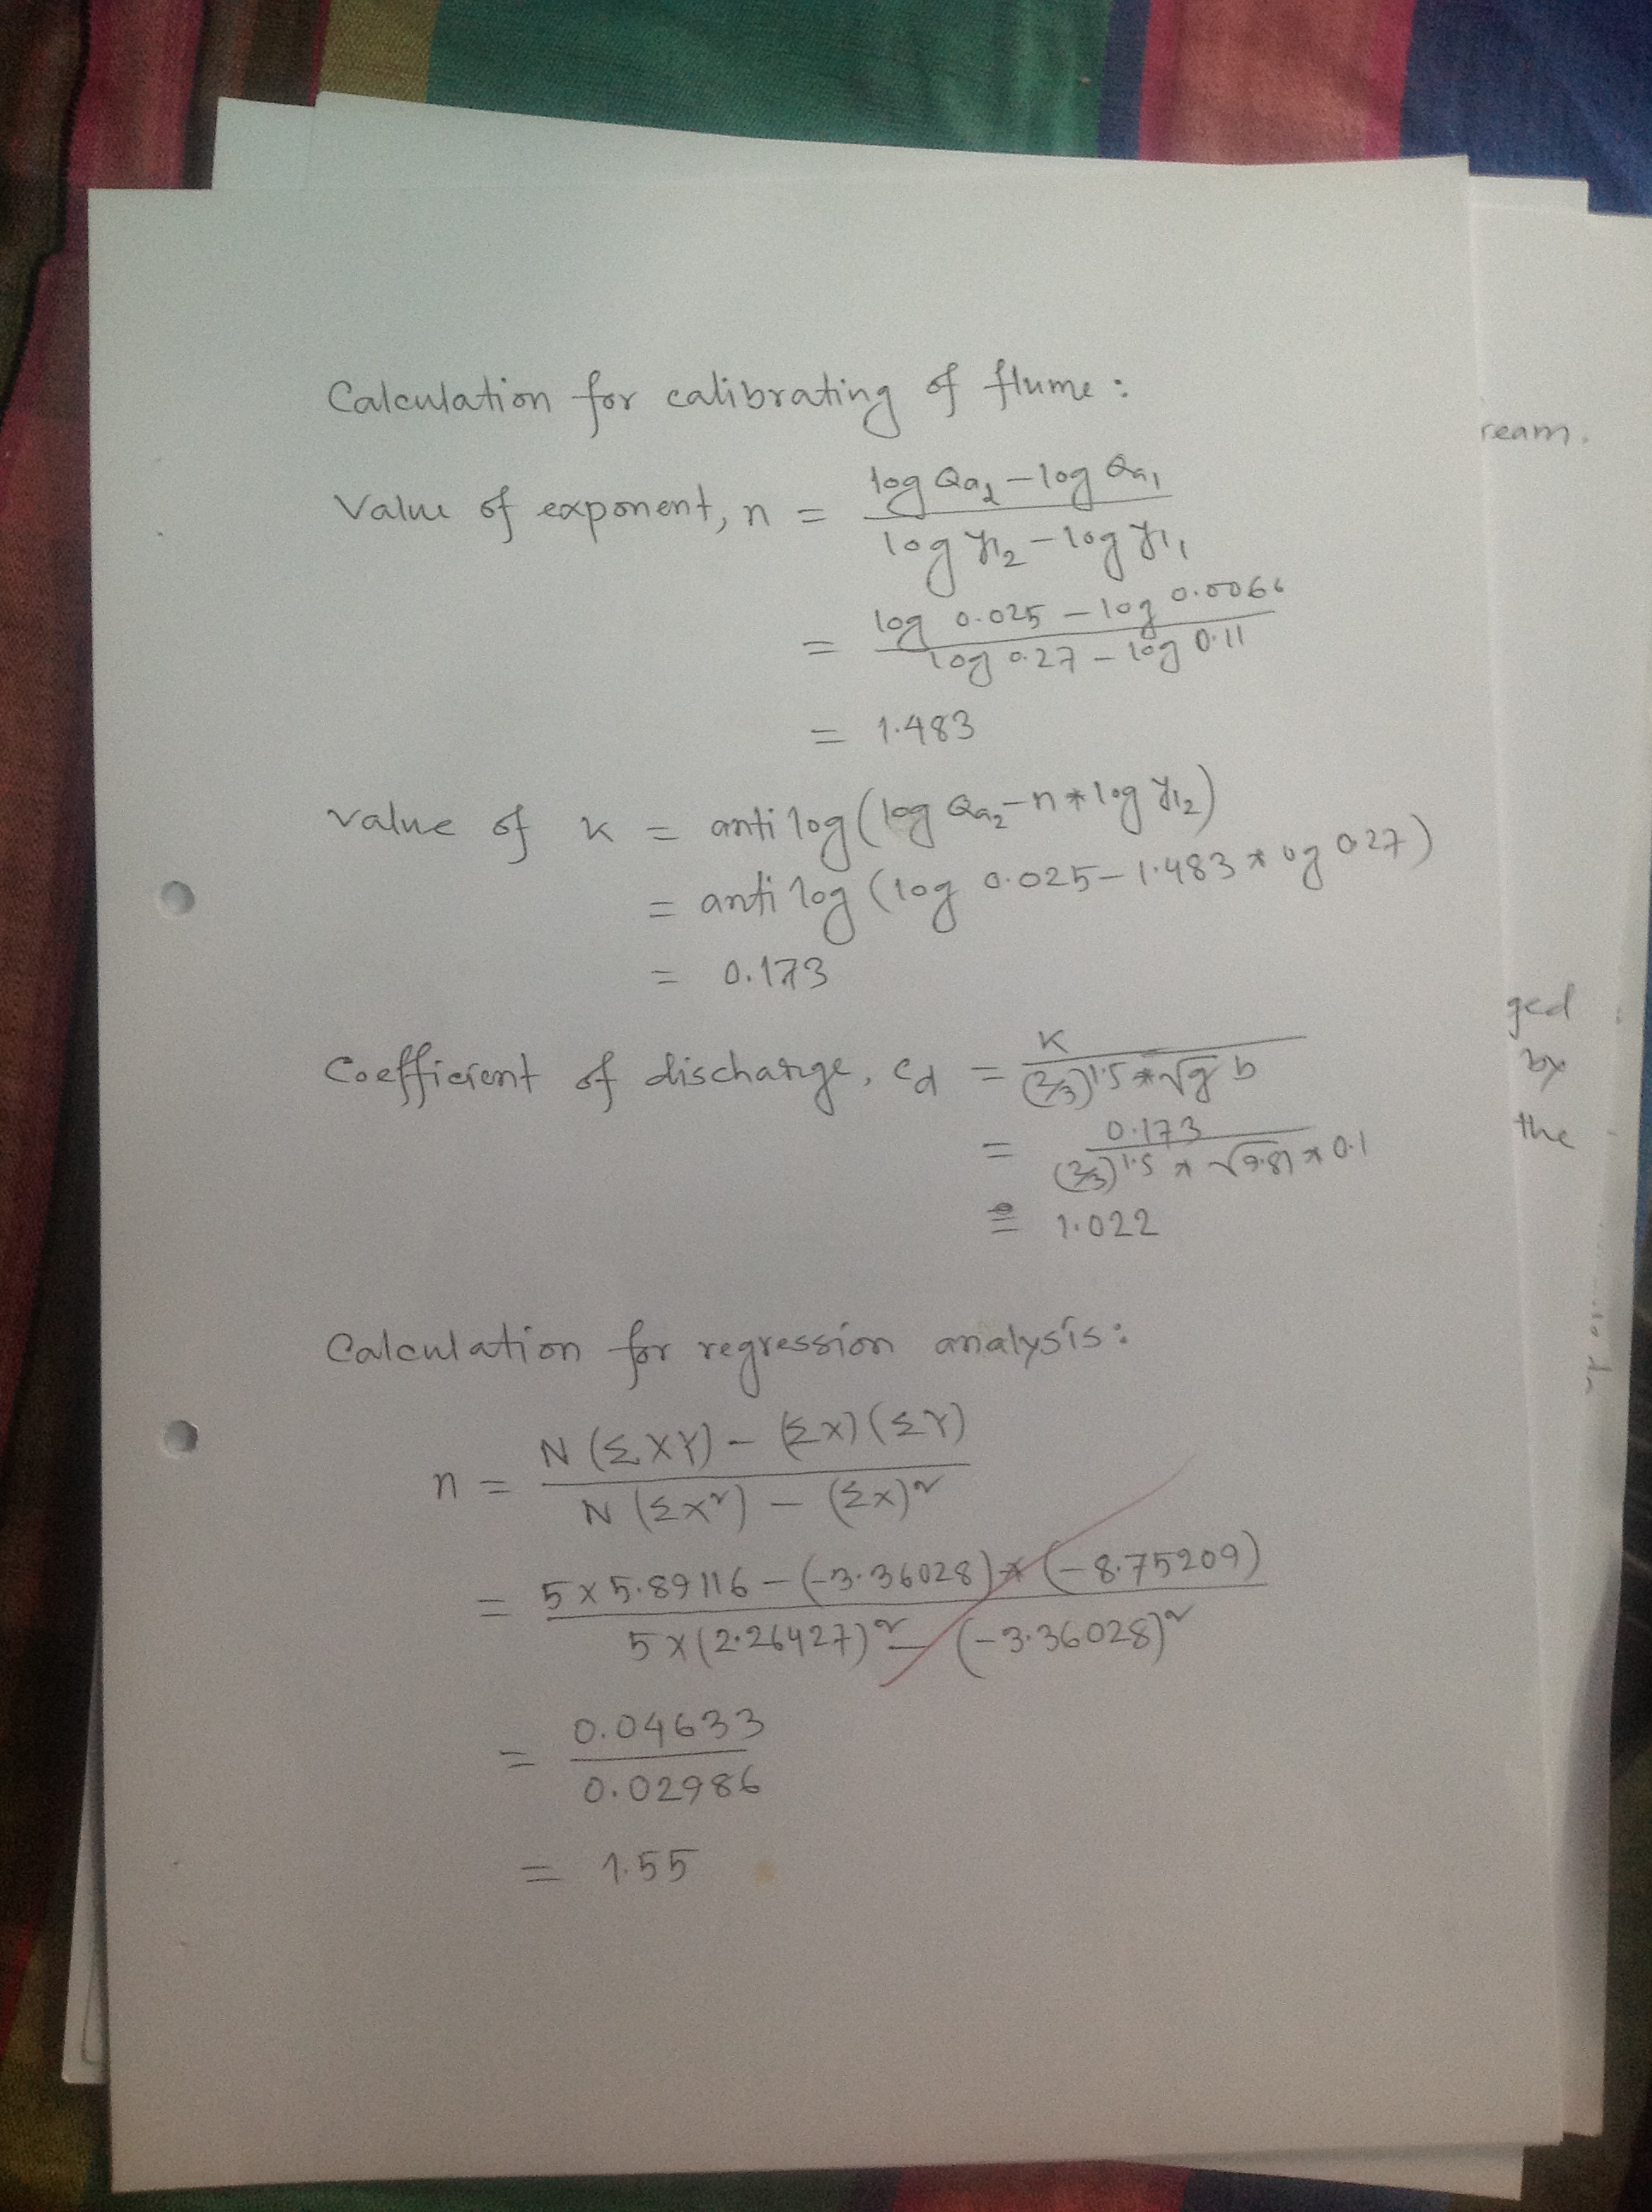 Calculation for calibrating of flume:
Value of exponent, n = (log Qa₂ − log Qa₁) / (log y₁₂ − log y₁₁)
= (log 0.025 − log 0.0066) / (log 0.27 − log 0.11)
= 1.483
Value of K = antilog (log Qa₂ − n * log y₁₂)
= antilog (log 0.025 − 1.483 * og 0.27)
= 0.173
Coefficient of discharge, Cd = K / ((2/3)^1.5 * √g b)
= 0.173 / ((2/3)^1.5 * √9.81 * 0.1)
= 1.022
Calculation for regression analysis:
n = (N (ΣXY) − (ΣX) (ΣY)) / (N (ΣX²) − (ΣX)²)
= (5 × 5.89116 − (−3.36028) × (−8.75209)) / (5 × (2.26427)² − (−3.36028)²)
= 0.04633 / 0.02986
= 1.55
ream.
ged
by
the